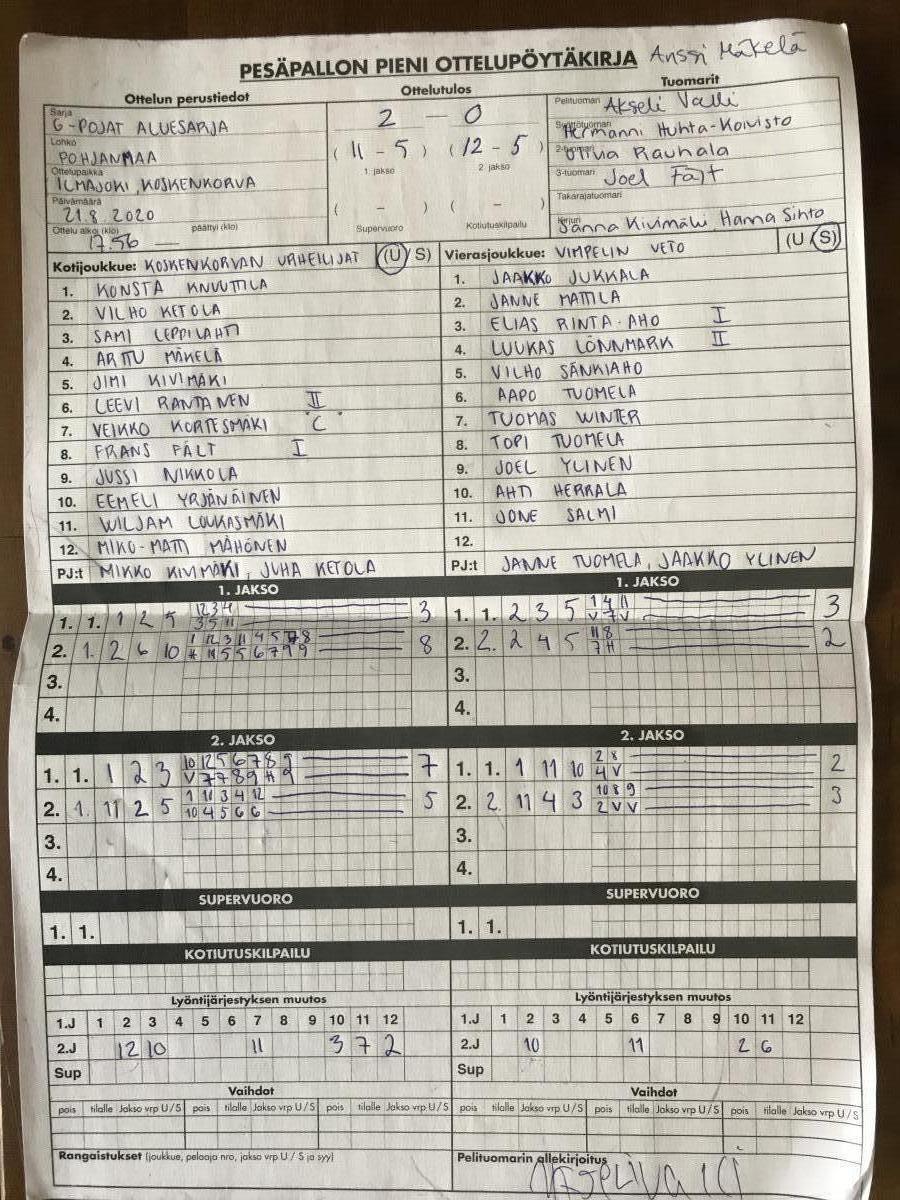 PESÄPALLON PIENI OTTELUPÖYTÄKIRJA Anssi Mäkelä
Ottelun perustiedot
Sarja
G-POJAT ALUESARJA
Lohko
POHJANMAA
Ottelupaikka
ILMAJOKI, KOSKENKORVA
Päivämäärä
21.8 2020
Ottelu alkoi (klo) päättyi (klo)
17.56 —
Ottelutulos
2 — 0
(11 - 5) (12 - 5)
1. jakso 2. jakso
( - ) ( - )
Supervuoro Kotiutuskilpailu
Tuomarit
Pelituomari Akseli Valli
Syöttötuomari Hermanni Huhta-Koivisto
2-tuomari Olivia Rauhala
3-tuomari Joel Fält
Takarajatuomari
Kirjuri Sanna Kivimäki Hanna Sihto
Kotijoukkue: KOSKENKORVAN URHEILIJAT (U/S)
1. KONSTA KNUUTILA
2. VILHO KETOLA
3. SAMI LEPPILAHTI
4. ARTTU MÄKELÄ
5. JIMI KIVIMÄKI
6. LEEVI RANTANEN II
7. VEIKKO KORTESMÄKI "C"
8. FRANS FÄLT I
9. JUSSI NIKKOLA
10. EEMELI YRJÄNÄINEN
11. WILJAM LOUKASMÄKI
12. MIKO-MATTI MÄHÖNEN
PJ:t MIKKO KIVIMÄKI, JUHA KETOLA
Vierasjoukkue: VIMPELIN VETO (U/S)
1. JAAKKO JUKKALA
2. JANNE MATTILA
3. ELIAS RINTA-AHO I
4. LUUKAS LÖNNMARK II
5. VILHO SÄNKIAHO
6. AAPO TUOMELA
7. TUOMAS WINTER
8. TOPI TUOMELA
9. JOEL YLINEN
10. AHTI HERRALA
11. JONE SALMI
12.
PJ:t JANNE TUOMELA, JAAKKO YLINEN
1. JAKSO
1. 1. 1 2 5 12 3 4 3
3 5 11
2. 1. 2 6 10 8
3.
4.
1. JAKSO
1. 1. 2 3 5 1 4 11 3
V 7 V
2. 2. 2 4 5 11 8 2
7 H
3.
4.
2. JAKSO
1. 1. 1 2 3 10 12 5 6 7 8 9 7
V 7 7 8 9 H 9
2. 1. 11 2 5 1 11 3 4 12 5
10 4 5 6 6
3.
4.
2. JAKSO
1. 1. 1 11 10 2 8 2
4 V
2. 2. 11 4 3 10 8 9 3
2 V V
3.
4.
SUPERVUORO
1. 1.
SUPERVUORO
1. 1.
KOTIUTUSKILPAILU
KOTIUTUSKILPAILU
Lyöntijärjestyksen muutos
1.J 1 2 3 4 5 6 7 8 9 10 11 12
2.J 12 10 11 3 7 2
Sup
Lyöntijärjestyksen muutos
1.J 1 2 3 4 5 6 7 8 9 10 11 12
2.J 10 11 2 6
Sup
Vaihdot
pois tilalle Jakso vrp U/S pois tilalle Jakso vrp U/S pois tilalle Jakso vrp U/S
Vaihdot
pois tilalle Jakso vrp U/S pois tilalle Jakso vrp U/S pois tilalle Jakso vrp U/S
Rangaistukset (joukkue, pelaaja nro, jakso vrp U / S ja syy)
Pelituomarin allekirjoitus